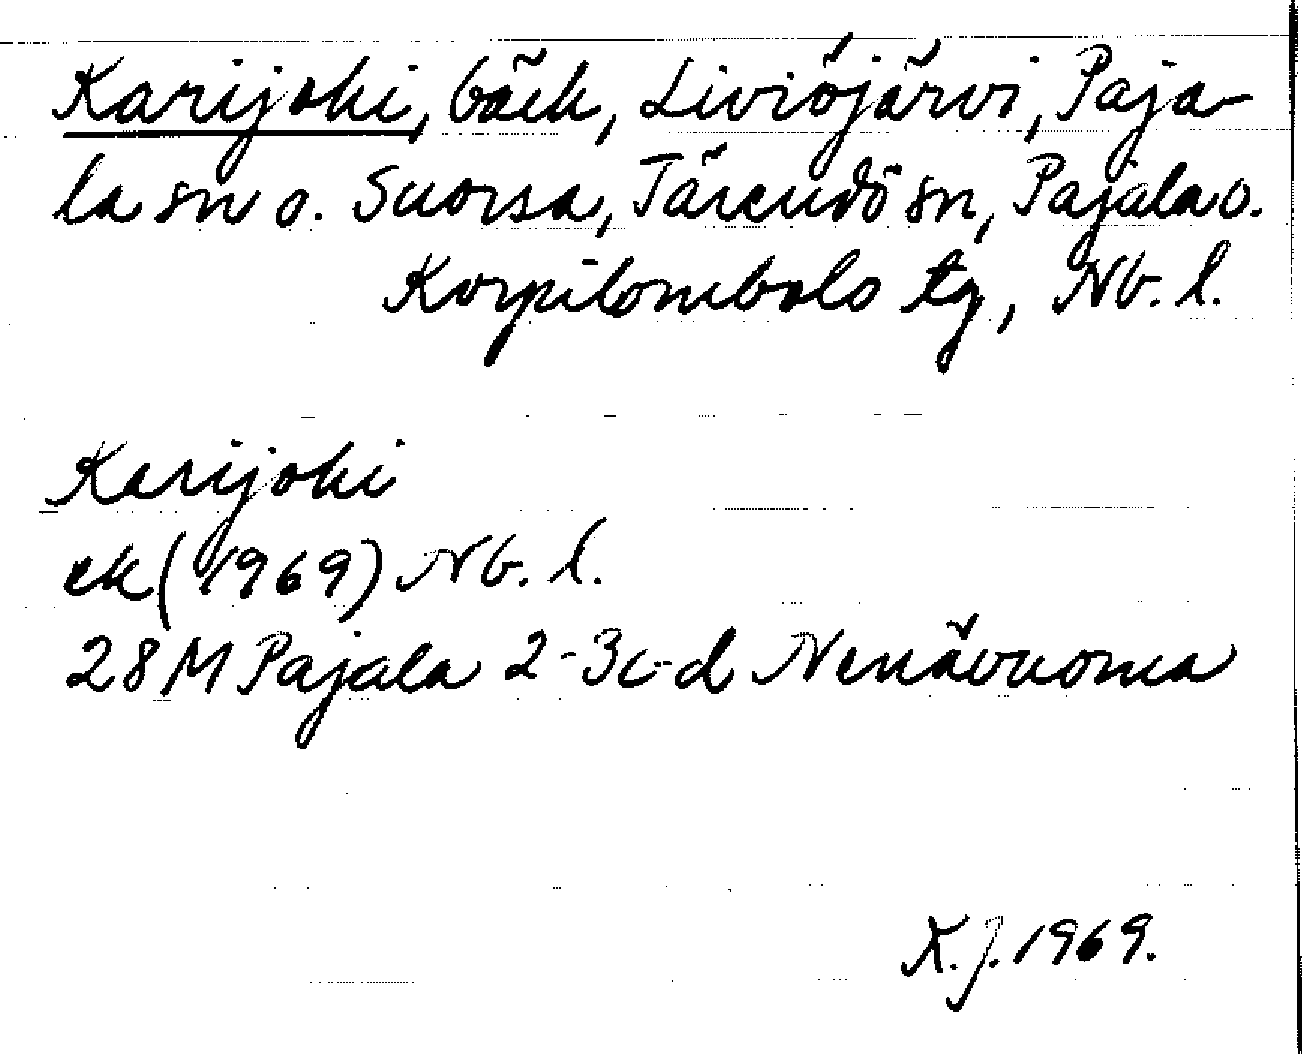 Karijoki, bäck, Liviöjärvi, Paja-
la sn o. Suorsa, Tärendö sn, Pajala o.
Korpilombolo tg, Nb. l.
Karijoki
ek (1969) Nb. l.
28 M Pajala 2-3c-d Nenävuoma
K.J. 1969.